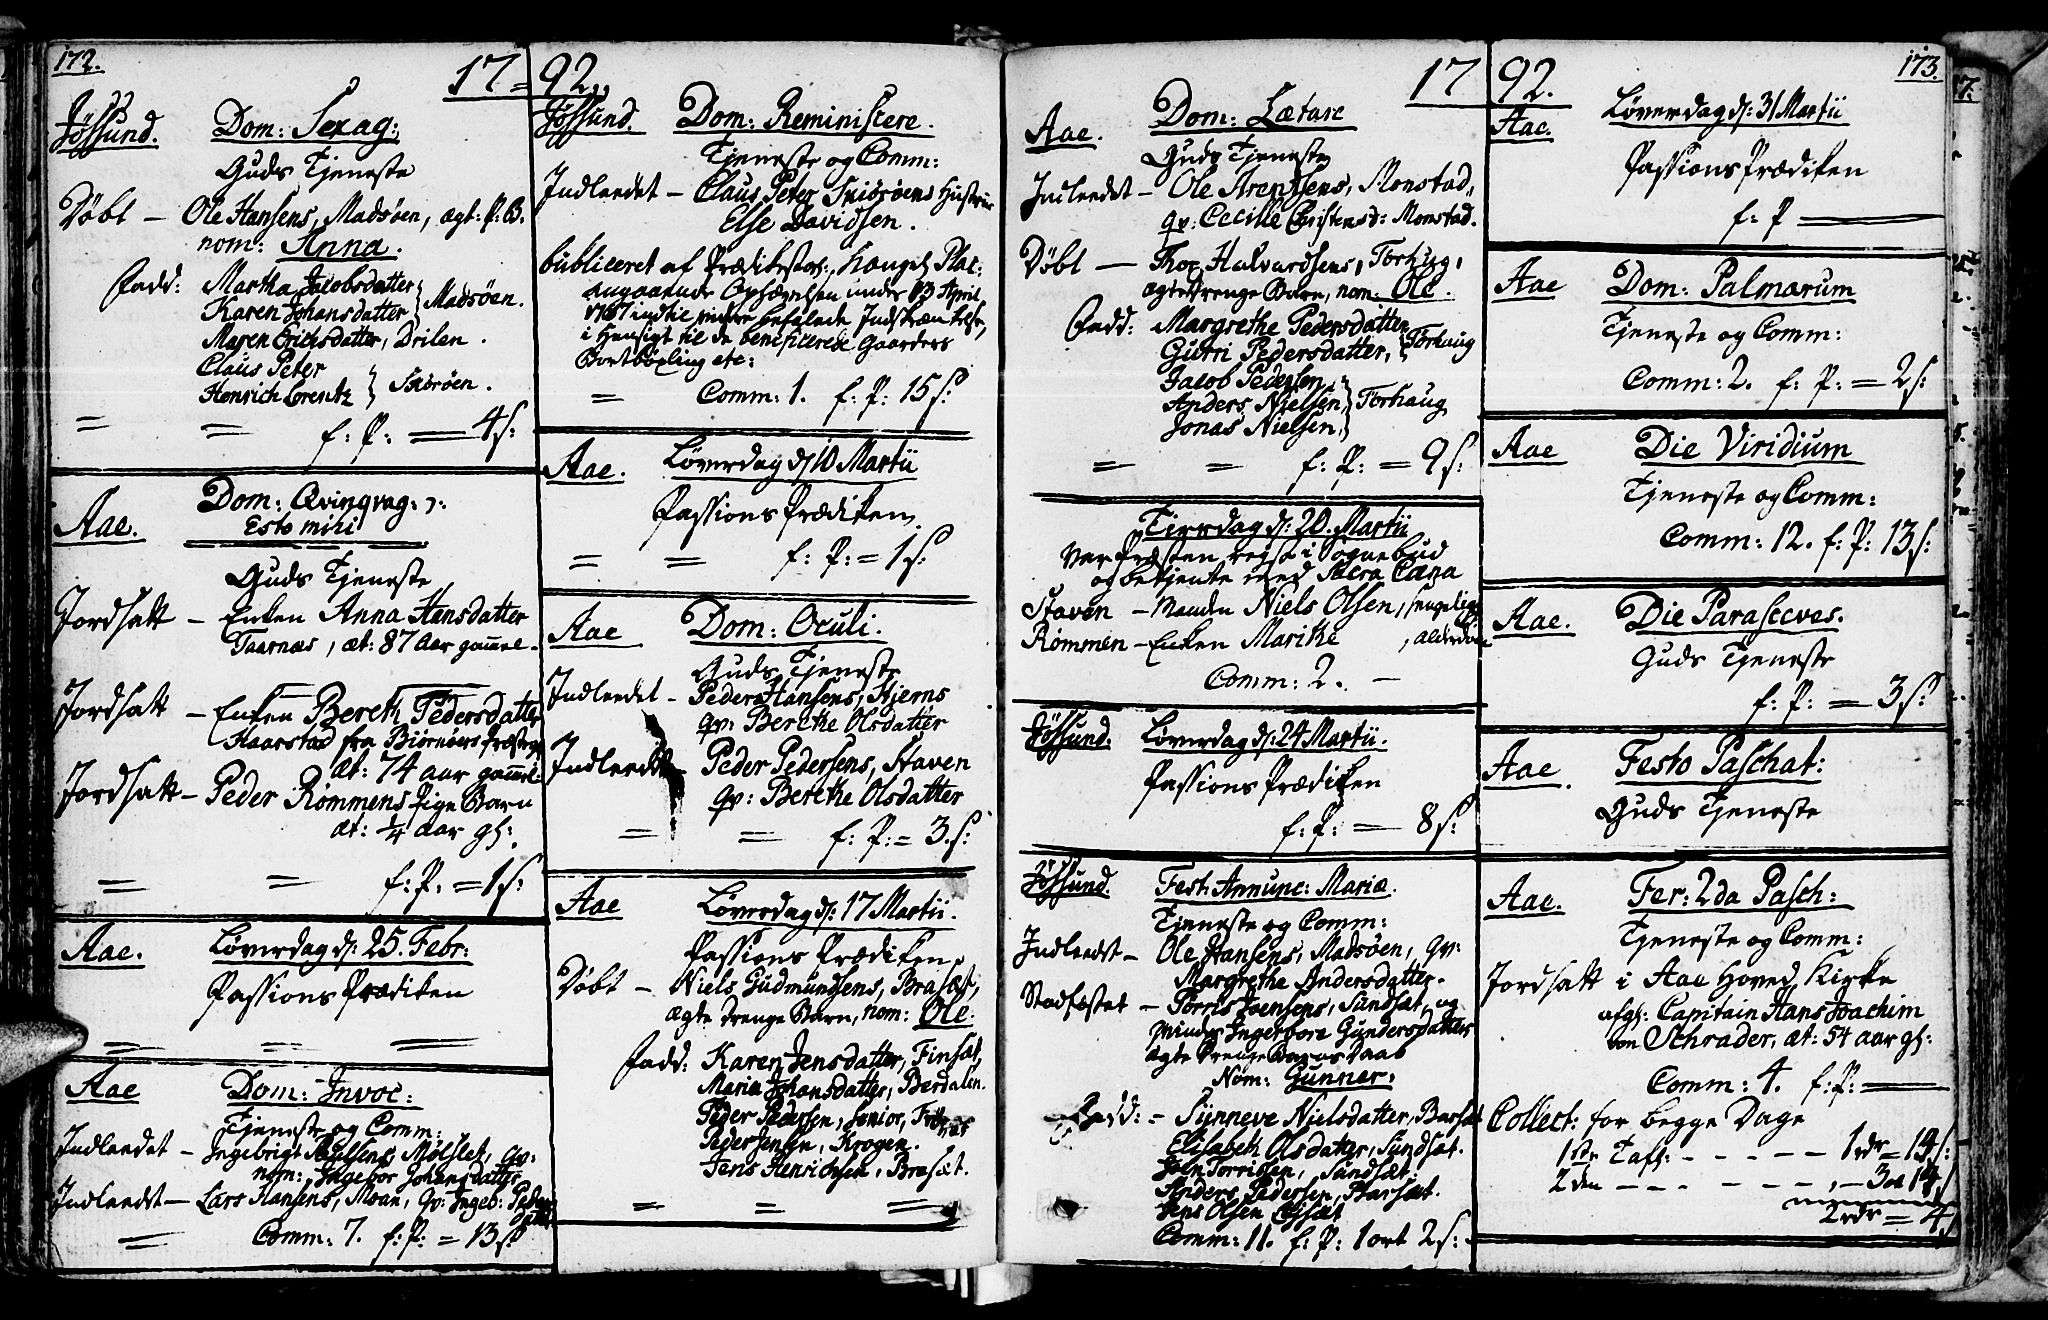 172.
17 = 92.
Jössund. Dom: Sexag:
Guds Tjeneste
Döbt – Ole Hansens, Madsöen, ægt: P: B.
nom: Anna.
Fadd: Martha Jacobsdatter
Karen Johansdatter } Madsöen.
Maren Erichsdatter, Drilen.
Claus Peter
Henrich Lorentz }
= = f: P: = 4 s:
Aae. Dom: Qvinqvag:
Esto mihi
Guds Tjeneste
Jordsatt – Enken Anna Hansdatter
Taarnæs, æt: 87 Aar gammel.
Jordsatt – Enken Bereth Pedersdatter
Haarstad fra Biörnöers
æt: 74 aar gammel
Jordsatt – Peder Römmens Pige Barn
æt: 1/4 aar gl:
= = f: P: = 1 s:
Aae. Löverdag d: 25. Febr:
Passions Prædiken
= = =
Aae Dom: Invoc:
Tjeneste og Comm:
Indleedet – Ingebrigt Paulsens, Mölslet, qv:
nom: Ingebor Johansdatter
Indleedet – Lars Hansens, Moan, qv: Ingeb: Peders
datter
= Comm: 7. f: P: = 13 s:
Jössund. Dom: Reminiscere.
Tjeneste og Comm:
Indleedet – Claus Peter Hustrue
Else Davidsen.
Publiceret af Prædikestol:, Kongel: Plac:
angaaende Ophævelsen under 13 April
1787 indtil videre befalede Indskrænkelse,
i Hensigt til de beneficerede Gaarders
Bortböxling etc:
= Comm: 1. f: P: 15 s:
Aae. Löverdag d: 10 Martii
Passions Prædiken.
= = f: P: = 1 s:
Aae Dom: Oculi.
Guds Tjeneste
Indleedet – Peder Hansens, Hjerns
qv: Berethe Olsdatter
Indleedet – Peder Pedersens, Staven
qv: Berethe Olsdatter
= = f: P: = 3. s:
Aae Löverdag d: 17 Martii.
Passions Prædiken
Döbt – Niels Gudmundsens, Brasæt,
ægte drenge Barn, nom: Ole:
Fadd: Karen Jensdatter, Finsæt,
Maria Johansdatter, Berdalen.
Peder Pedersen, Senior,
Peder Jensen, Krogen.
Jens Henrichsen, Brasæt.
= = =
17 92. 173.
Aae. Dom: Lætare
Guds Tjeneste
Indleedet – Ole Arentsens, Monstad,
qv: Cecille Christensd: Monstad.
Döbt – Thor Halvardsens, Torhug,
ægte drenge Barn, nom: Ole.
Fadd: Margrethe Pedersdatter
Gurri Pedersdatter, } Torhaug
Jacob Pedersen,
Anders Nielsen, } Torhaug
Jonas Nielsen,
= = f: P: = 9 s:
Tirsdag d: 20. Martii
var Præsten reist i Sognebud
og betjente med Sacra Cæna
Staven – Manden Niels Olsen, sengeligg
Römmen – Enken Marithe
Comm: 2. –
Jössund. Löverdag d: 24 Martii.
Passions Prædiken
f: P: = 8 s:
Jössund. Fest: Annunc: Mariæ.
Tjeneste og Comm:
Indleedet – Ole Hansens, Madsöen, qv:
Margrethe Andersdatter.
Stadfæstet – Torris Joensens, Sundsæt, og
Qvindes Ingerbore Gundersdatters
ægte Drenge Barns Daab
Nom: Gunner.
Fadd: – Sünneve Nielsdatter,
Elisabeth Olsdatter, Sundsæt.
Joen Torrisen, Sundsæt.
Anders Pedersen, Harsæt.
Jens Olsen
Comm: 11. f: P: 1 ort 2 s:
Aae. Löverdag d: 31 Martii
Passions Prædiken
f: P
Aae Dom: Palmarum
Tjeneste og Comm:
Comm: 2. f: P: = 2 s:
Aae Die Viridium
Tjeneste og Comm:
Comm: 12. f: P: 13 s:
Aae. Die Parasceves.
Guds Tjeneste
f: P: = 3 s:
Aae Festo Paschat:
Guds Tjeneste
Aae. Fer: 2da Pasch:
Tjeneste og Comm:
Jordsatt i Aae Hoved Kirke
afgl: Capitain Hans Joachim
von Schrader, æt: 54 aar gl:
Comm: 4. f: P:
Collect: for begge Dage
1ste Tafl: – – – – – 1 dr = 14 s:
2den – – – – – – – 3 ort 14 s
2 rdr = 4 s